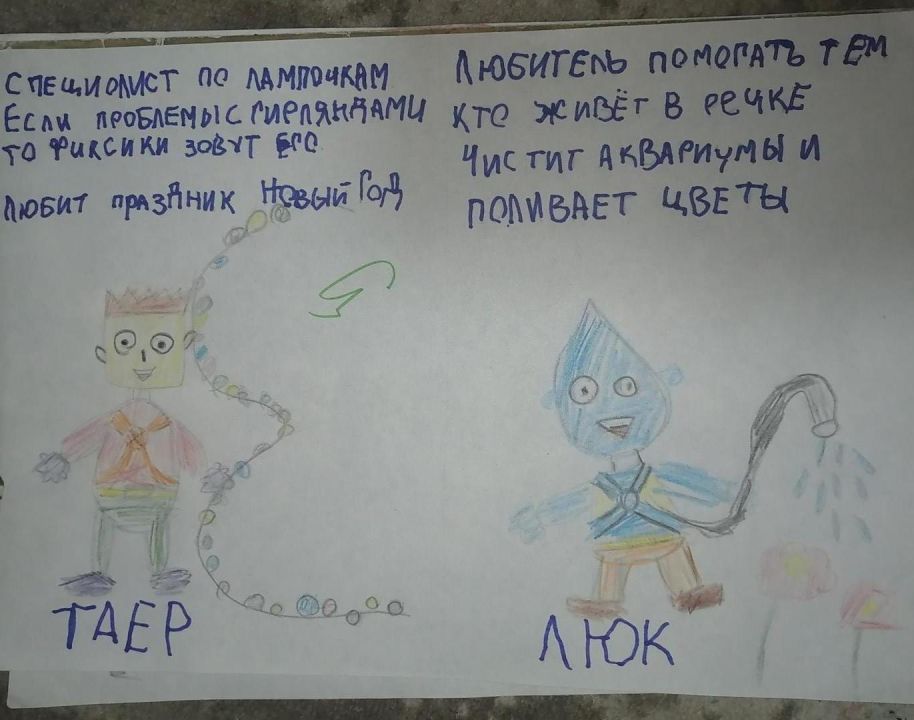 СПЕЦИОЛИСТ ПО ЛАМПОЧКАМ
ЕСЛИ ПРОБЛЕМЫ С ГИРЛЯНДАМИ
ТО ФИКСИКИ ЗОВУТ ЕГО
ЛЮБИТ ПРАЗДНИК НОВЫЙ ГОД
ЛЮБИТЕЛЬ ПОМОГАТЬ ТЕМ
КТО ЖИВЁТ В РЕЧКЕ
ЧИСТИТ АКВАРИУМЫ И
ПОЛИВАЕТ ЦВЕТЫ
ТАЕР
ЛЮК